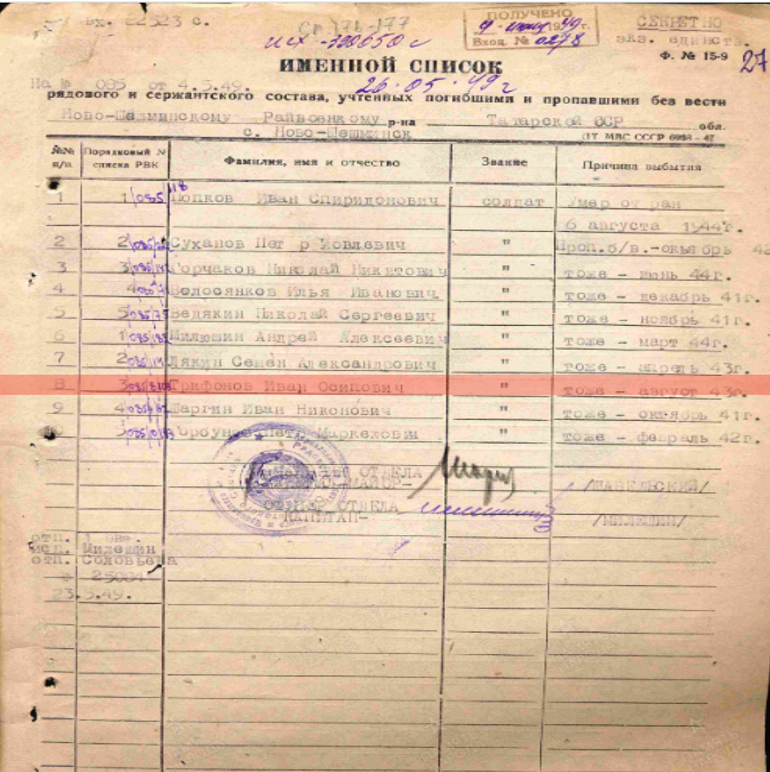 вх. 22523 с.
ПОЛУЧЕНО
Вход. № 0278
СЕКРЕТНО
экз. единств.
Ф. № 15-9
27
ИМЕННОЙ СПИСОК
На № 085 от 4.5.49.
26.05.49г
рядового и сержантского состава, учтенных погибшими и пропавшими без вести
Ново-Шешминскому Райвоенкому р-на Татарской ССР обл.
с. Ново-Шешминск
№№ п/п
Порядковый № списка РВК
Фамилия, имя и отчество
Звание
Причина выбытия
1 1 Попков Иван Спиридонович солдат Умер от ран
6 августа 1944г.
2 2 Суханов Петр Иовлевич " Проп.б/в.-октябрь 42
3 3 Горчаков Николай Никитович " тоже - июнь 44г.
4 4 Волосянков Илья Иванович " тоже - декабрь 41г.
5 5 Ведякин Николай Сергеевич " тоже - ноябрь 41г.
6 1 Милюшин Андрей Алексеевич " тоже - март 44г.
7 2 Лякин Семен Александрович " тоже - апрель 43г.
8 3 Трифонов Иван Осипович " тоже - август 43г.
9 4 Шаргин Иван Никонович " тоже - октябрь 41г.
10 5 Горбунов Петр Маркелович " тоже - февраль 42г.
ОТДЕЛА
МАЙОР-
/ШАВЕЛЬСКИЙ/
ОФИЦЕР ОТДЕЛА
КАПИТАН-
/МИЛЕШИН/
отп. 1 экз.
исп. Милешин
отп. Соловьева
25004
23.5.49.